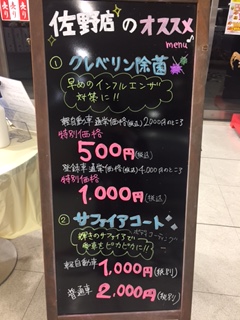 佐野店のオススメ
menu♪
① クレベリン除菌
早めのインフルエンザ
対策に!!
軽自動車 通常価格(税込)2000円のところ
特別価格
500円(税込)
登録車 通常価格(税込)4,000円のところ
特別価格
1,000円(税込)
② サファイアコート
ボディコーティング
輝きのサファイアで
愛車をピカピカに!!
軽自動車 1,000円(税別)
普通車 2,000円(税別)